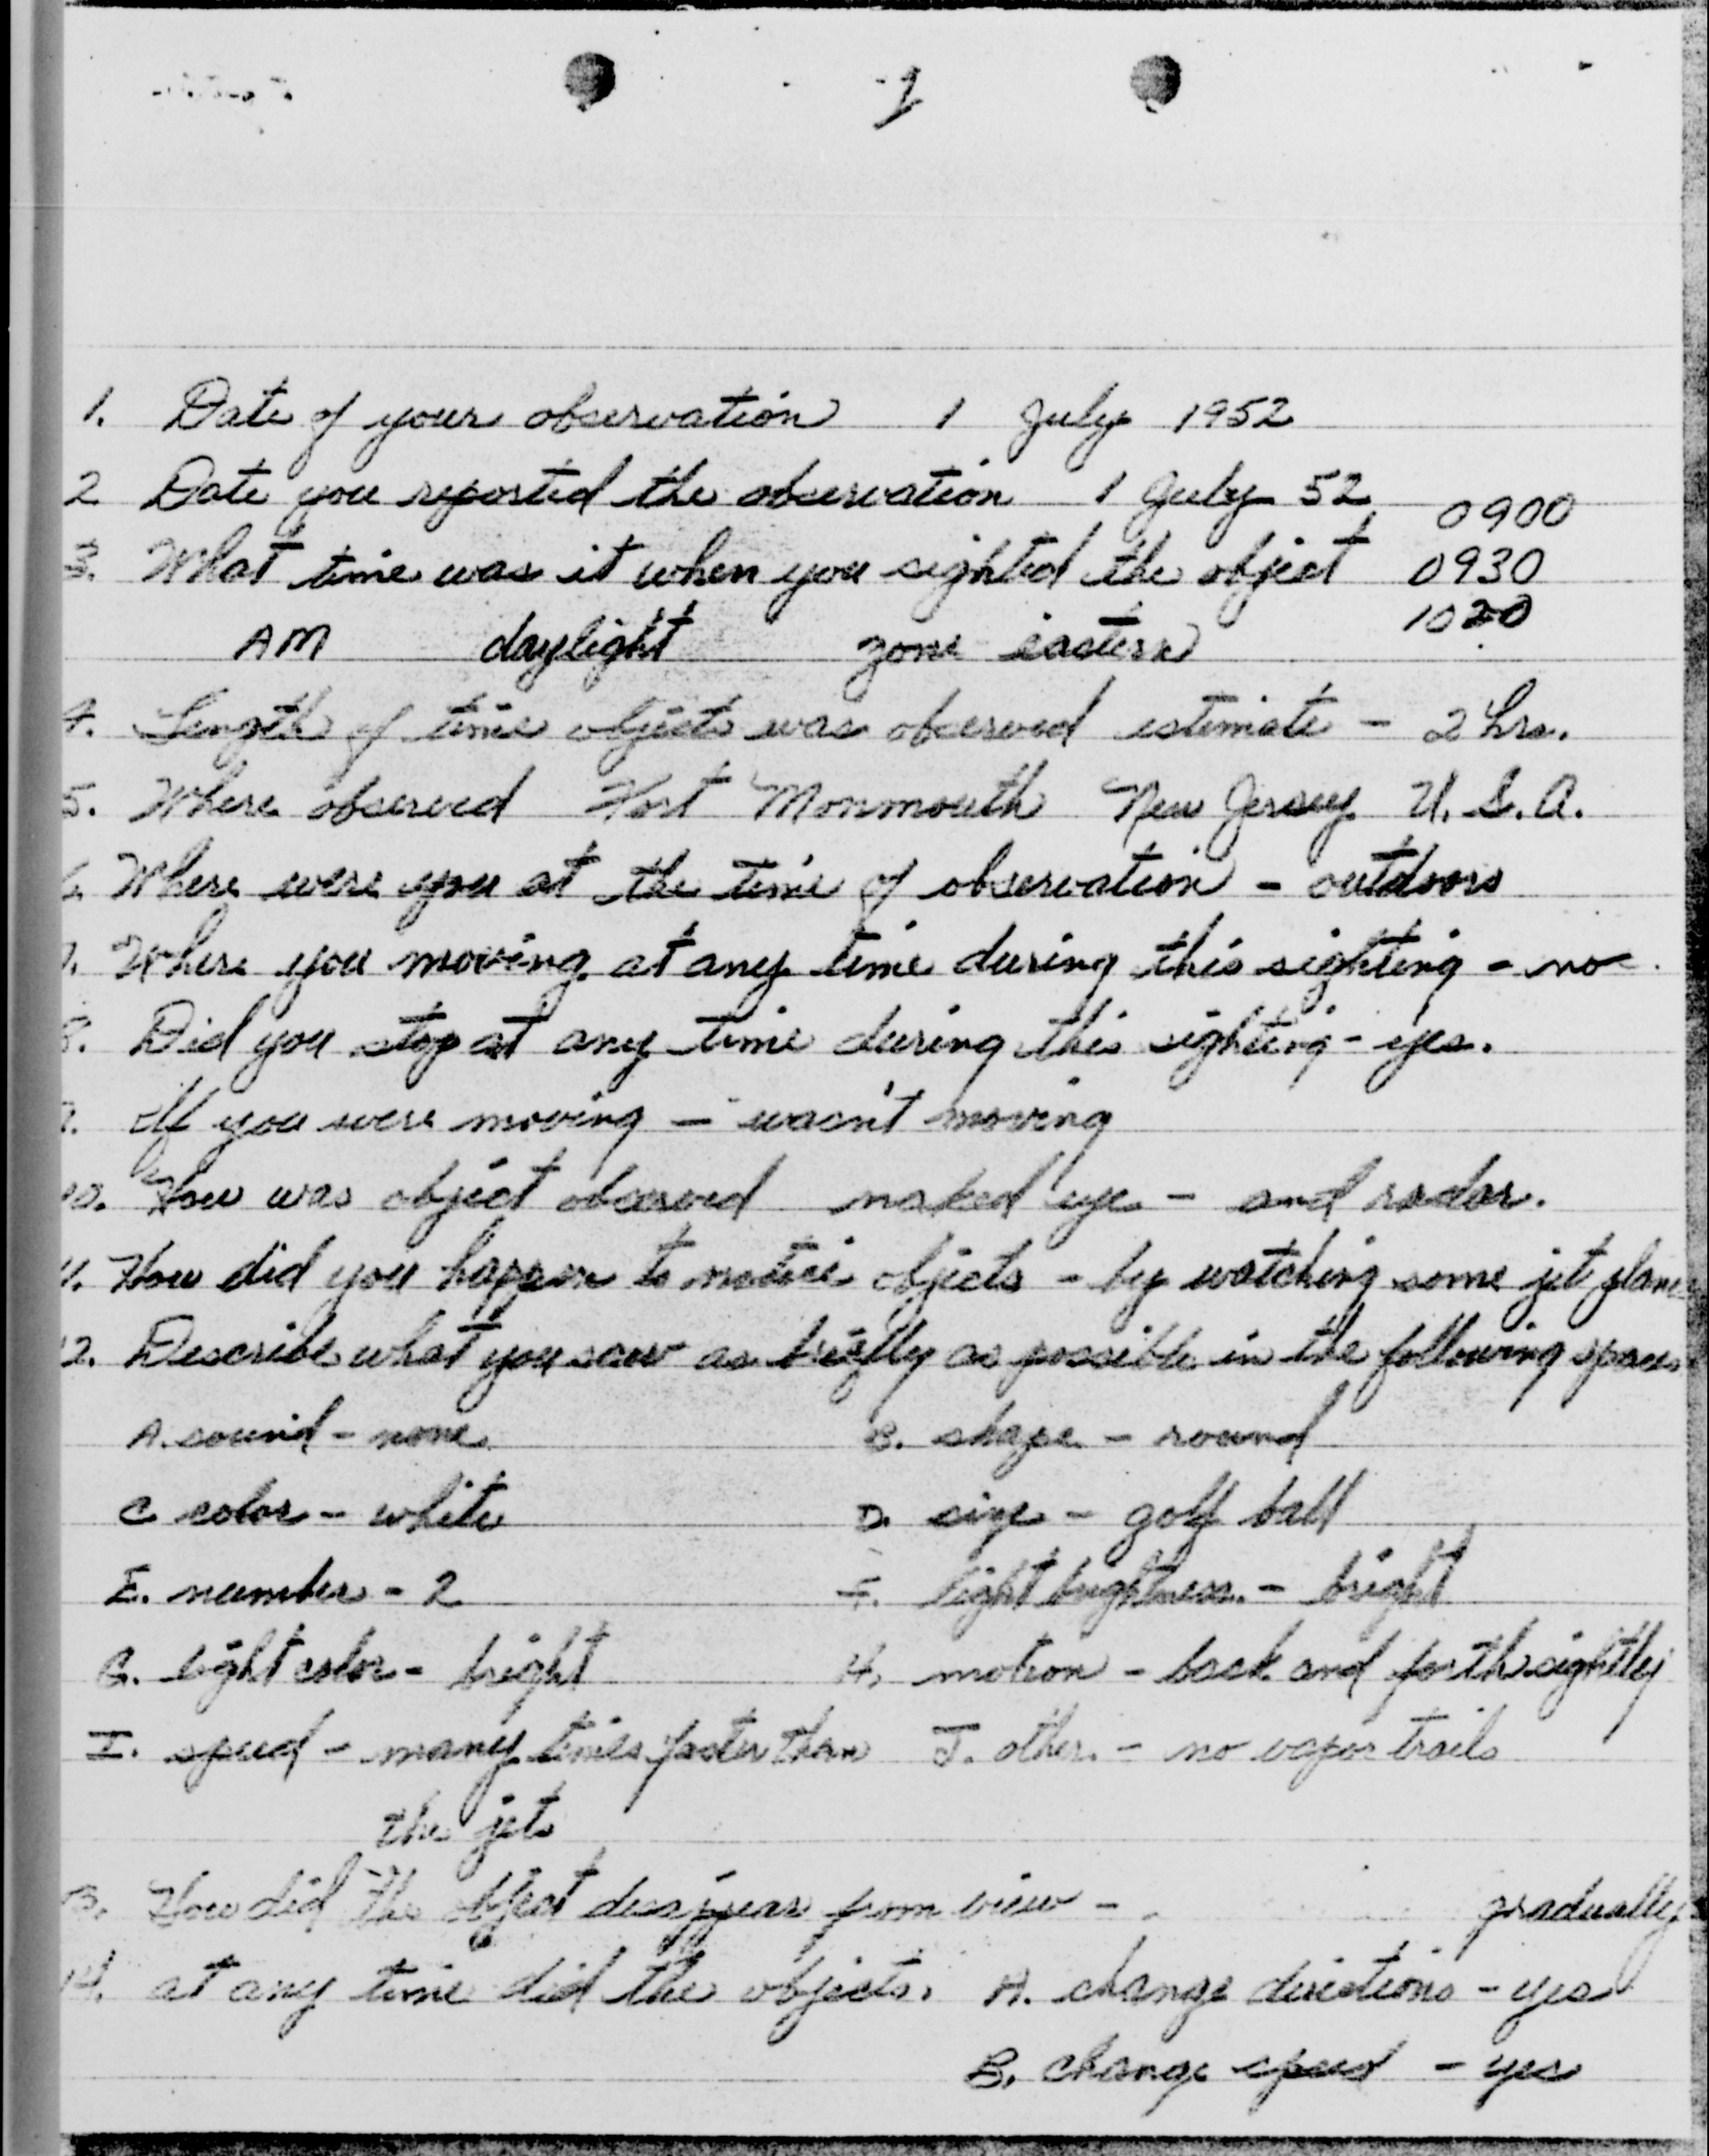 1. Date of your observation 1 July 1952
2 Date you reported the observation 1 July 52
0900
3. What time was it when you sighted the object 0930
1020
AM daylight zone eastern
4. Length of time objects was observed estimate - 2 hrs.
5. Where observed Fort Monmouth New Jersey U.S.A.
6. Where were you at the time of observation - outdoors
7. Where you moving at any time during this sighting - no.
8. Did you stop at any time during this sighting - yes.
9. If you were moving - wasn't moving
10. How was object observed naked eye - and radar.
11. How did you happen to notice objects - by watching some jet planes
12. Describe what you saw as briefly as possible in the following spaces
A. sound - none B. shape - round
C color - white D. size - golf ball
E. number - 2 F. light brightness. - bright
G. light color - bright H. motion - back and forth sightly
I. speed - many times faster than J. other. - no vapor trails
the jets
13. How did the object disappear from view - gradually.
14. at any time did the objects. A. change directions - yes
B. change speed - yes